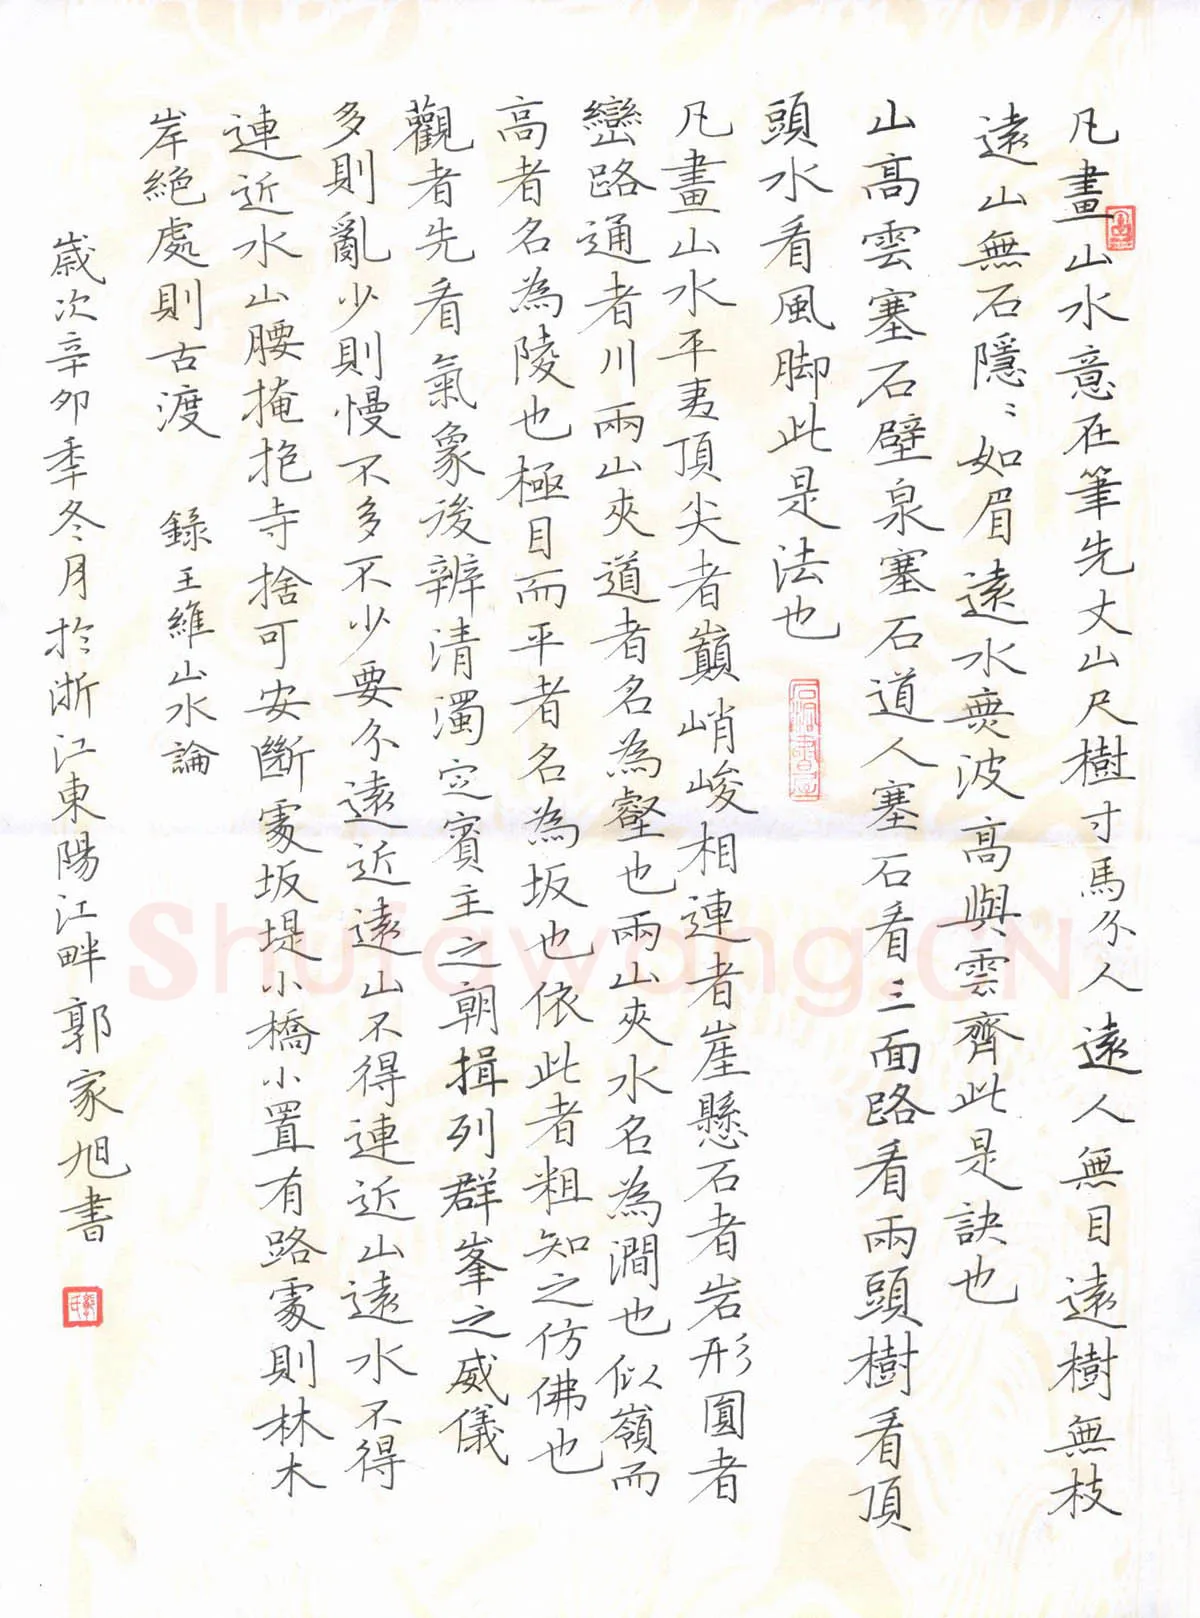 凡畫山水意在筆先丈山尺樹寸馬分人遠人無目遠樹無枝
遠山無石隱〻如眉遠水無波高與雲齊此是訣也
山高雲塞石壁泉塞石道人塞石看三面路看兩頭樹看頂
頭水看風脚此是法也
凡畫山水平夷頂尖者巔峭峻相連者崖懸石者岩形圓者
巒路通者川兩山夾道者名為壑也兩山夾水名為澗也似嶺而
高者名為陵也極目而平者名為坂也依此者粗知之仿佛也
觀者先看氣象後辨清濁定賓主之朝揖列群峯之威儀
多則亂少則慢不多不少要分遠近遠山不得連近山遠水不得
連近水山腰掩抱寺捨可安斷處坂堤小橋小置有路處則林木
岸絕處則古渡 錄王維山水論
歲次辛卯季冬月於浙江東陽江畔郭家旭書
Shufawang.CN